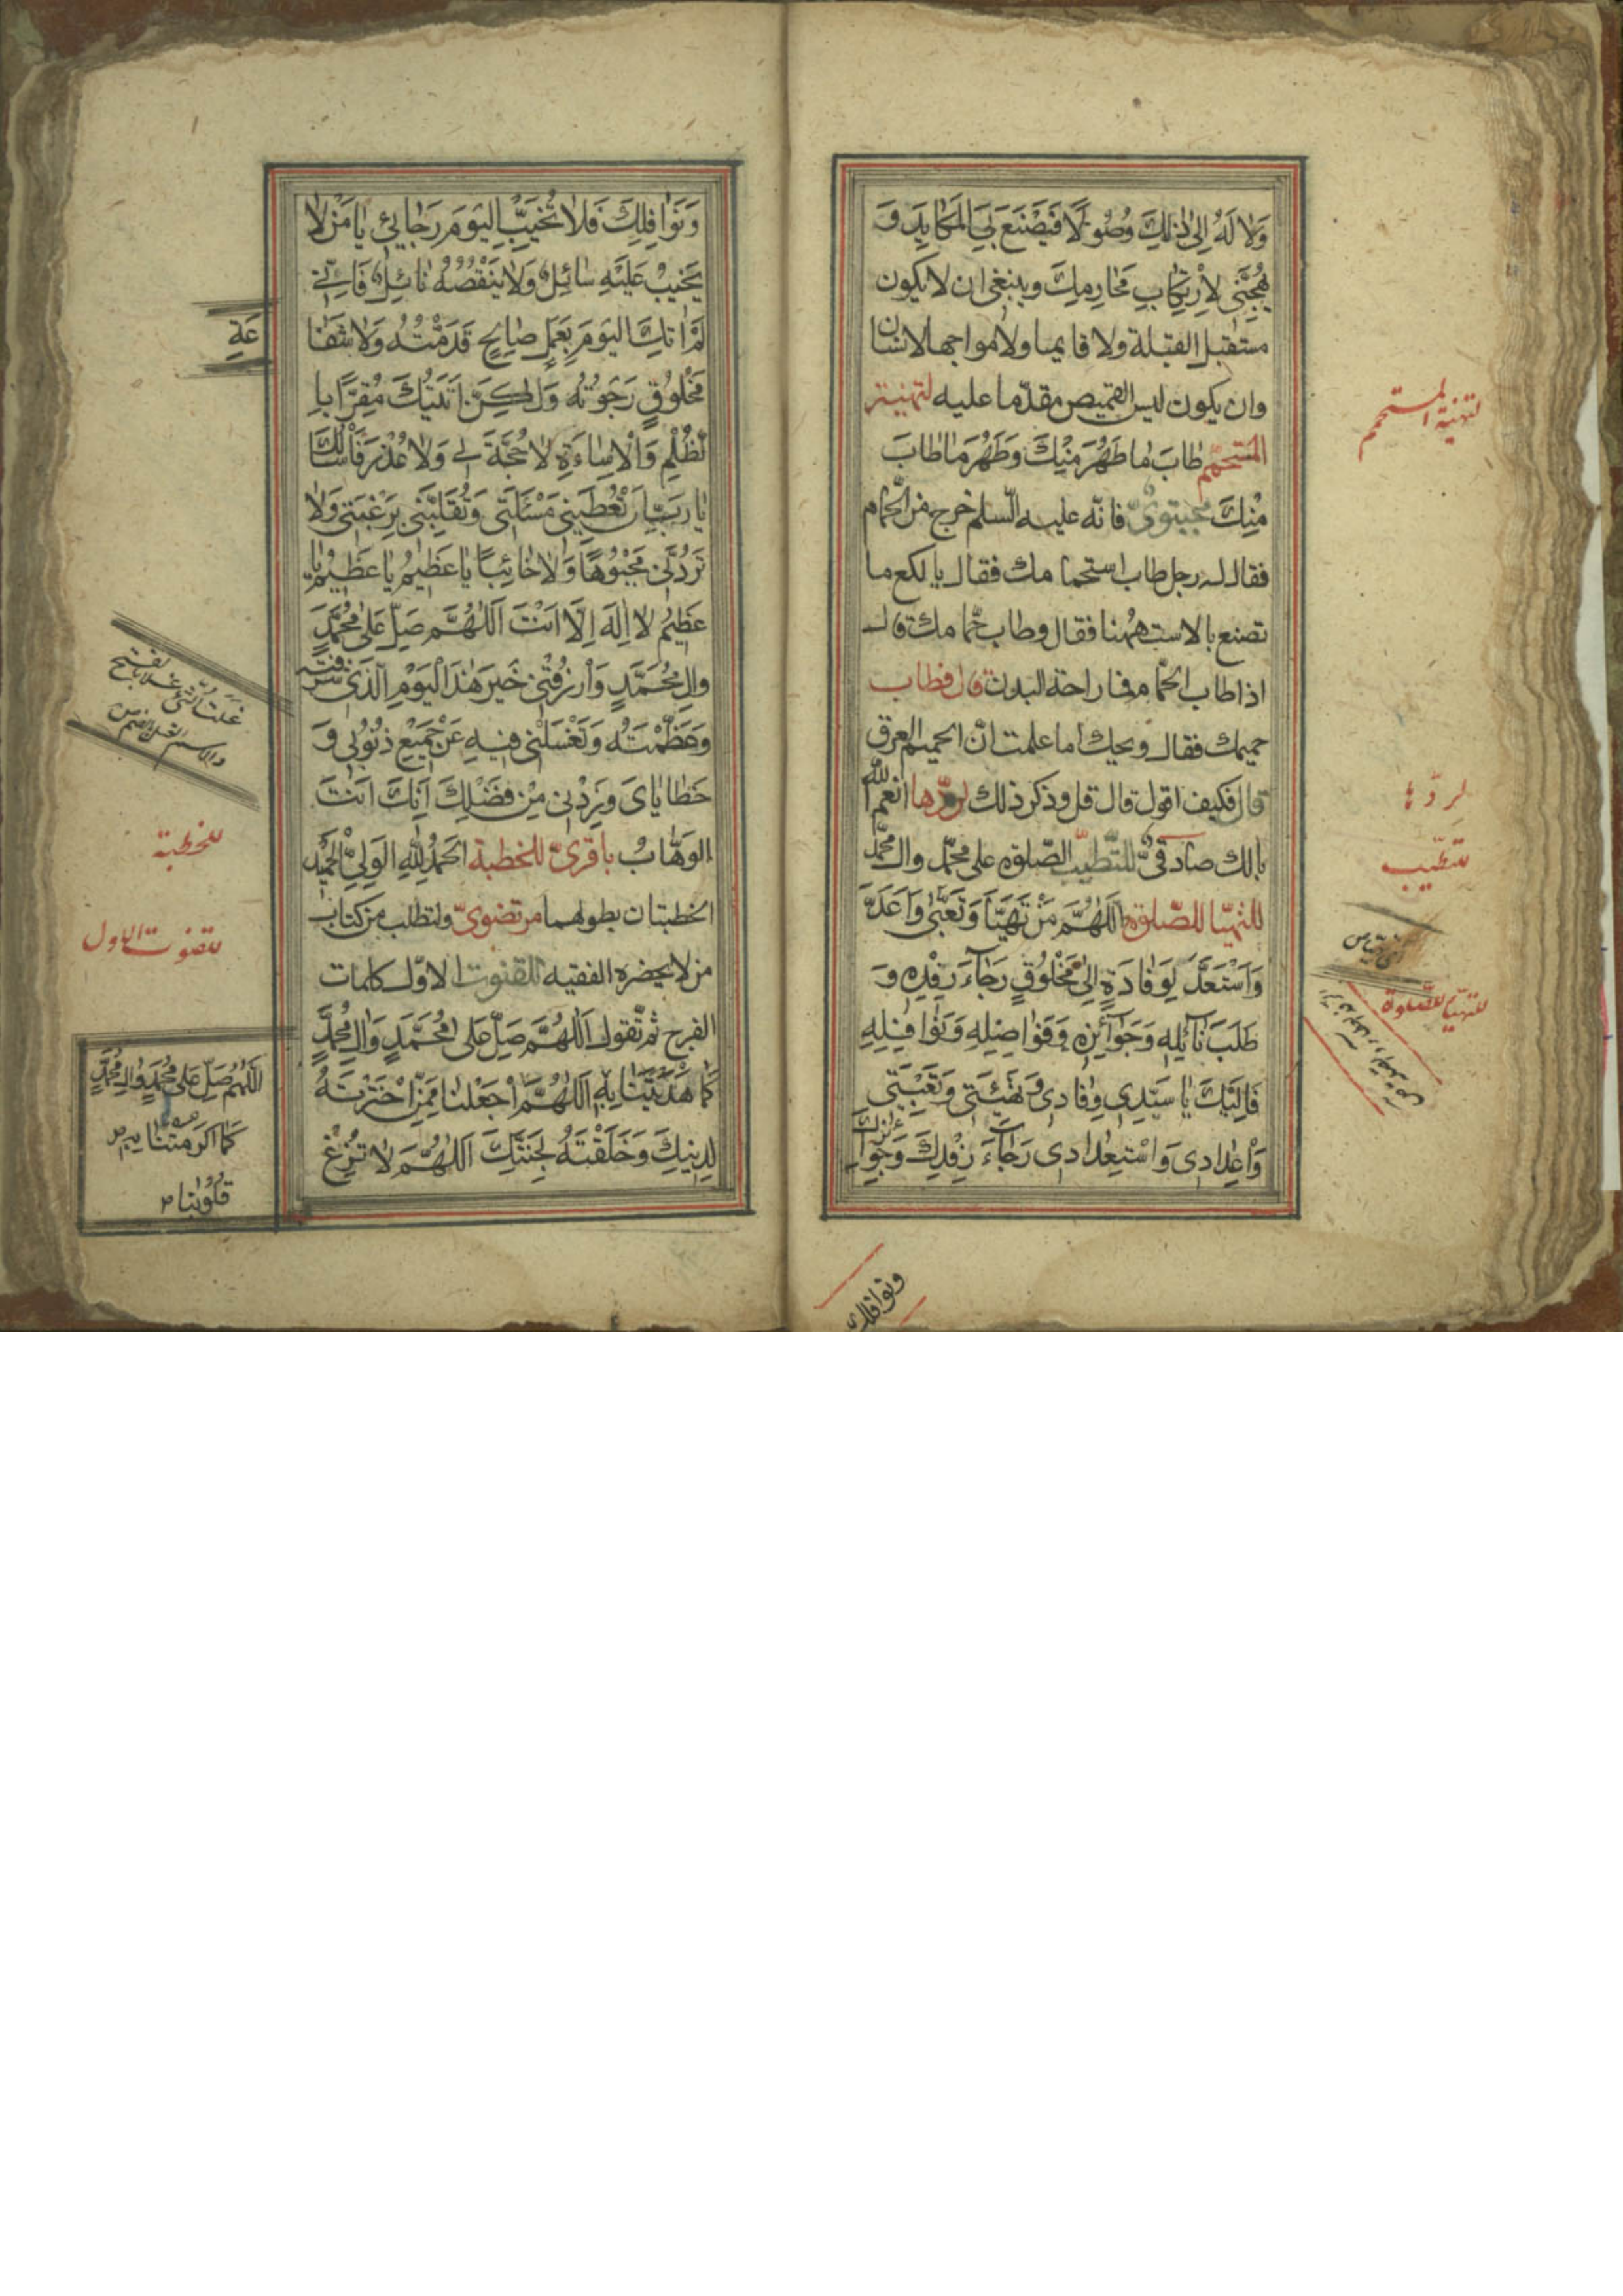 وَلا لَهُ اِلىٰ ذٰلِكَ وُصُولًا فَيَصْنَعَ بِيَ المَكايِدَ وَ
يُهَيِّجَنى لِاْرتِكابِ مَحارِمِكَ وينبغى ان لا يكون
مستقبل القبلة ولا قايما ولا مواجها لانسان
وان يكون لبس القميص مقدّما عليه لتهنية
المستحمّ طابَ ما طَهُرَ مِنْكَ وَطَهُرَ مَا طابَ
مِنْكَ مجتبوىّ فانّه عليه السلم خرج من الحمّام
فقال له رجل طاب استحمامك فقال يا لكع ما
تصنع بالاست ههنا فقال وطاب حمّامك قال
اذا طاب الحمّام فما راحة البدن قال فطاب
حميمك فقال ويحك اما علمت انّ الحميم العرق
قال فكيف اقول قال قل وذكر ذلك لردّها انعم الله
بالك صادقىّ للتّطيّب الصّلوة على محمّد وال محمّد
للتهيّا للصّلوة اَللّهُمَّ مَنْ تَهَيَّاَ وَتَعَبّىٰ وَاَعَدَّ
وَاْستَعَدَّ لِوِفادَةٍ اِلىٰ مَخْلُوقٍ رَجآءَ رِفْدِهِ وَ
طَلَبَ نآئِلِهِ وَجَوآئِزِهِ وَفَواضِلِهِ وَنَوافِلِهِ
فَاِلَيْكَ يا سَيِّدى وِفادَى وَتَهْيِئَتى وَتَعْبِيَتى
وَاْعِدادى وَاسْتِعْدادى رَجآءَ رِفْدِكَ وَجَوآ
ئِزِكَ
ونوافلك
لتهنية المستحمم
لردّها
للتطيّب
للتهيّا للصّلوة
وَنَوافِلِكَ فَلا تُخَيِّبِ اليَومَ رَجائى يا مَنْ لا
يَخيبُ عَلَيْهِ سائِلٌ وَلا يَنْقُصُهُ نائِلٌ فَاِنّى
لَمْ اٰتِكَ اليَومَ بِعَمَلٍ صالِحٍ قَدَّمْتُهُ وَلا شَفا
عَةِ
مَخْلُوقٍ رَجَوتُهُ وَلكِنْ اَتَيْتُكَ مُقِرًّا بِا
لظُّلْمِ وَالْاِساءَةِ لا حُجَّةَ لى وَلا عُذْرَ فَاَسْاَلُكَ
يا رَبِّ اَنْ تُعْطِيَنى مَسْئَلَتى وَتَقْلِبَنى بِرَغْبَتى وَلا
تَرُدَّنى مَجْبُوهًا وَلا خائِبًا يا عَظيمُ يا عَظيمُ يا
عَظيمُ لا اِلهَ اِلّا اَنْتَ اَللّهُمَّ صَلِّ عَلى مُحَمَّدٍ
والِ مُحَمَّدٍ وَاْرزُقْنى خَيرَ هٰذَا الْيَوْمِ الَّذى شَرَّفْتَهُ
وَعَظَّمْتَهُ وَتَغْسِلْنى فيهِ عَنْ جَميعِ ذُنُوبى وَ
خَطاياىَ وَزِدْنى مِنْ فَضْلِكَ اِنَّكَ اَنْتَ
الوَهّابُ باقرىّ للخطبة الحَمْدُ لِلّهِ الوَلِىِّ الحَميدِ
الخطبتان بطولهما مرتضوىّ ولتطلب من كتاب
من لا يحضره الفقيه للقنوت الاوّل كلمات
الفرج ثم تقول اَللّهُمَّ صَلِّ عَلى مُحَمَّدٍ وَالِ مُحَمَّدٍ
كَما هَدَيْتَنا بِهِ اَللّهُمَّ اْجعَلْنا مِمَّنِ اْختَرْتَهُ
لِدينِكَ وَخَلَقْتَهُ لِجَنَّتِكَ اَللّهُمَّ لا تُزِغْ
للخطبة
للقنوت الاول
اَللّهُمَّ صَلِّ عَلى مُحَمَّدٍ وَالِ مُحَمَّدٍ
كَما اَكْرَمْتَنا بِهِ
قُلُوبَنا